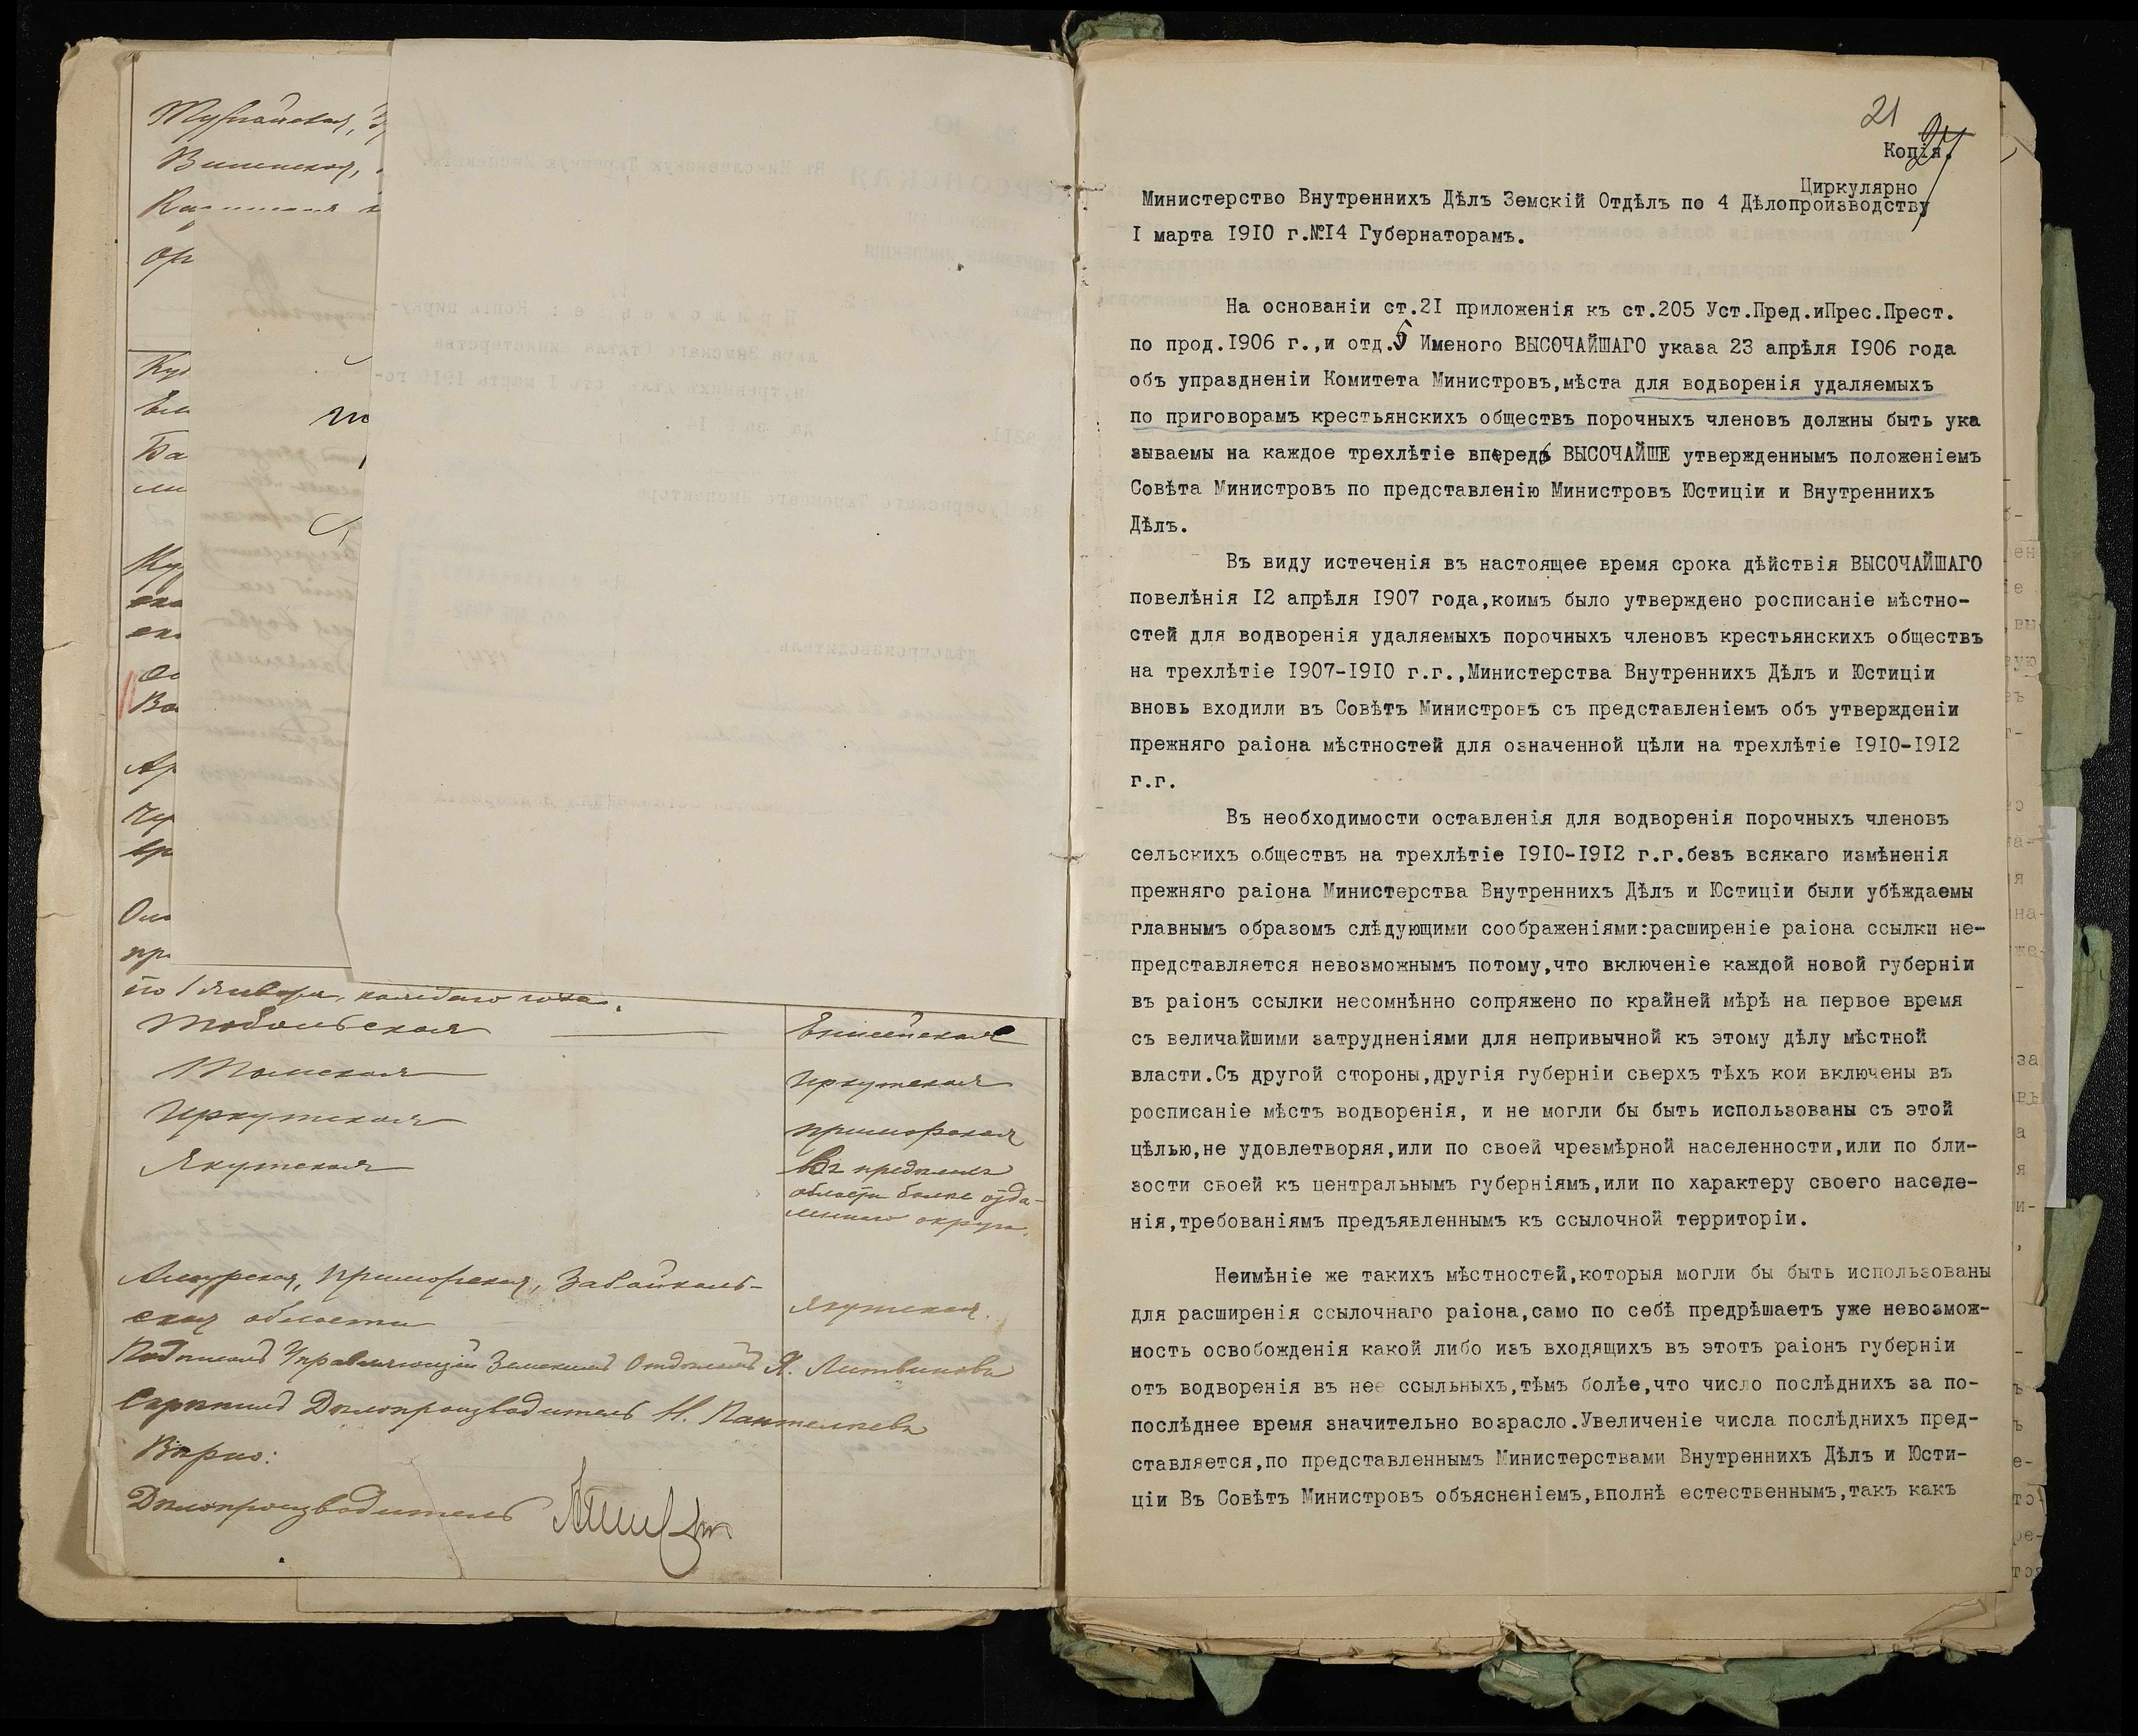 Тургайская,
Виленская,
по 1 января, каждаго года.
Тобольская
Томская
Иркутская
Якутская
Енисейская
Иркутская
Приморская
Въ предѣлахъ
области болѣе отда-
леннаго округа.
Амурская, Приморская, Забайкаль-
ская области
Якутская.
Подписалъ Управляющій Земскимъ Отдѣломъ Я. Литвиновъ
Скрѣпилъ Дѣлопроизводитель Н. Пантелѣевъ
Вѣрно:
Дѣлопроизводитель
21
Копія.
Циркулярно
Министерство Внутреннихъ Дѣлъ Земскій Отдѣлъ по 4 Дѣлопроизводству
I марта I9I0 г.№I4 Губернаторамъ.
На основаніи ст.2I приложенія къ ст.205 Уст.Пред.иПрес.Прест.
по прод.I906 г.,и отд.5 Именого ВЫСОЧАЙШАГО указа 23 апрѣля I906 года
объ упраздненіи Комитета Министровъ,мѣста для водворенія удаляемыхъ
по приговорамъ крестьянскихъ обществъ порочныхъ членовъ должны быть ука
зываемы на каждое трехлѣтіе впередъ ВЫСОЧАЙШЕ утвержденнымъ положеніемъ
Совѣта Министровъ по представленію Министровъ Юстиціи и Внутреннихъ
Дѣлъ.
Въ виду истеченія въ настоящее время срока дѣйствія ВЫСОЧАЙШАГО
повелѣнія I2 апрѣля I907 года,коимъ было утверждено росписаніе мѣстно-
стей для водворенія удаляемыхъ порочныхъ членовъ крестьянскихъ обществъ
на трехлѣтіе I907-I9I0 г.г.,Министерства Внутреннихъ Дѣлъ и Юстиціи
вновь входили въ Совѣтъ Министровъ съ представленіемъ объ утвержденіи
прежняго раіона мѣстностей для означенной цѣли на трехлѣтіе I9I0-I9I2
г.г.
Въ необходимости оставленія для водворенія порочныхъ членовъ
сельскихъ обществъ на трехлѣтіе I9I0-I9I2 г.г.безъ всякаго измѣненія
прежняго раіона Министерства Внутреннихъ Дѣлъ и Юстиціи были убѣждаемы
главнымъ образомъ слѣдующими соображеніями:расширеніе раіона ссылки не-
представляется невозможнымъ потому,что включеніе каждой новой губерніи
въ раіонъ ссылки несомнѣнно сопряжено по крайней мѣрѣ на первое время
съ величайшими затрудненіями для непривычной къ этому дѣлу мѣстной
власти.Съ другой стороны,другія губерніи сверхъ тѣхъ кои включены въ
росписаніе мѣстъ водворенія, и не могли бы быть использованы съ этой
цѣлью,не удовлетворяя,или по своей чрезмѣрной населенности,или по бли-
зости своей къ центральнымъ губерніямъ,или по характеру своего населе-
нія,требованіямъ предъявленнымъ къ ссылочной территоріи.
Неимѣніе же такихъ мѣстностей,которыя могли бы быть использованы
для расширенія ссылочнаго раіона,само по себѣ предрѣшаетъ уже невозмож-
ность освобожденія какой либо изъ входящихъ въ этотъ раіонъ губерніи
отъ водворенія въ нее ссыльныхъ,тѣмъ болѣе,что число послѣднихъ за по-
послѣднее время значительно возрасло.Увеличеніе числа послѣднихъ пред-
ставляется,по представленнымъ Министерствами Внутреннихъ Дѣлъ и Юсти-
ціи Въ Совѣтъ Министровъ объясненіемъ,вполнѣ естественнымъ,такъ какъ